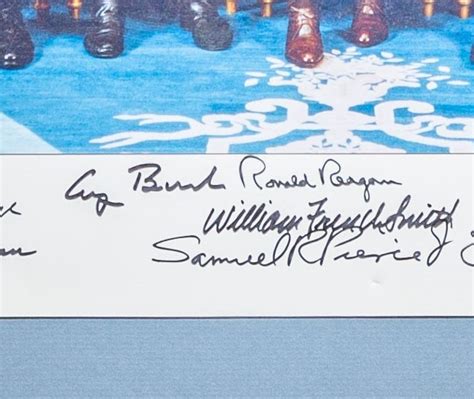 Bush Ronald Reagan
William French Smith
Samuel R Pierce